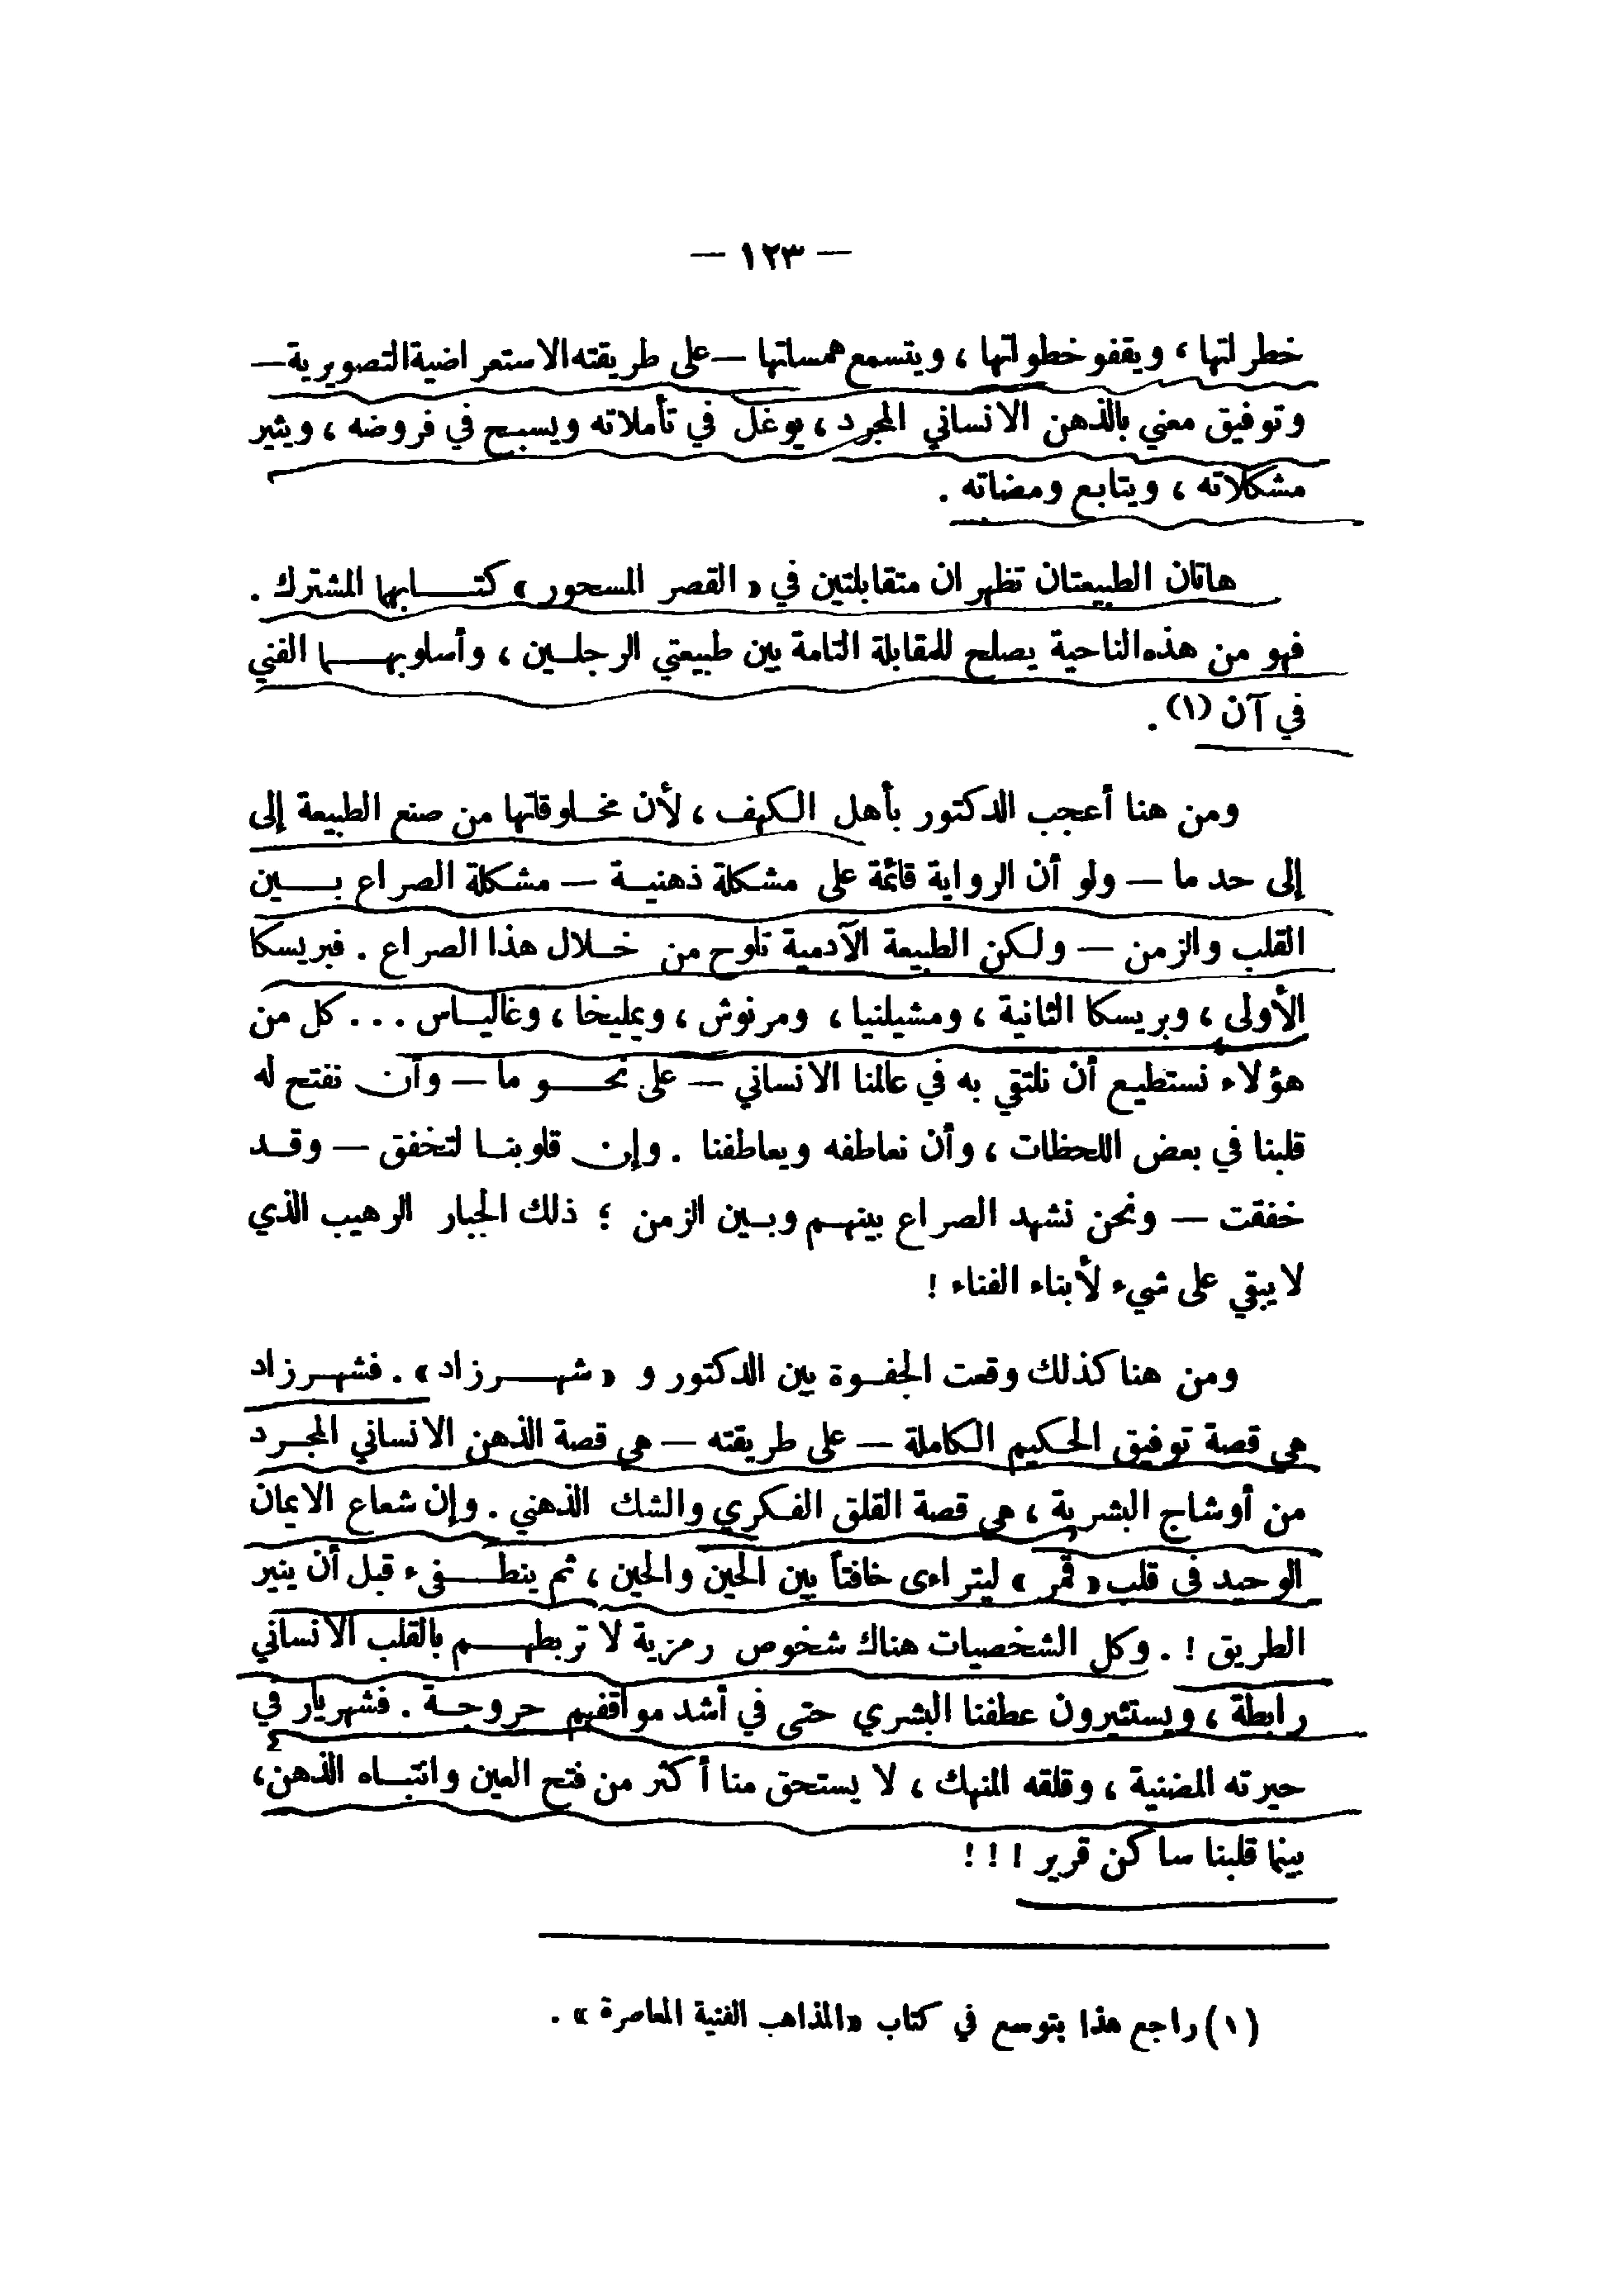 — ١٢٣ —
خطراتها ، ويقفو خطواتها ، ويتسمع همساتها — على طريقته الاستعراضية التصويرية —
وتوفيق معني بالذهن الانساني المجرد ، يوغل في تأملاته ويسبح في فروضه ، ويثير
مشكلاته ، ويتابع ومضاته .
هاتان الطبيعتان تظهران متقابلتين في « القصر المسحور » كتابهما المشترك .
فهو من هذه الناحية يصلح للمقابلة التامة بين طبيعتي الرجلين ، وأسلوبهما الفني
في آن (١) .
ومن هنا أعجب الدكتور بأهل الكهف ، لأن مخلوقاتها من صنع الطبيعة إلى
إلى حد ما — ولو أن الرواية قائمة على مشكلة ذهنية — مشكلة الصراع بين
القلب والزمن — ولكن الطبيعة الآدمية تلوح من خلال هذا الصراع . فبريسكا
الأولى ، وبريسكا الثانية ، ومشيلنيا ، ومرنوش ، ويمليخا ، وغالياس ... كل من
هؤلاء نستطيع أن نلتقي به في عالمنا الانساني — على نحو ما — وأن نفتح له
قلبنا في بعض اللحظات ، وأن نعاطفه ويعاطفنا . وإن قلوبنا لتخفق — وقد
خفقت — ونحن نشهد الصراع بينهم وبين الزمن ؛ ذلك الجبار الرهيب الذي
لا يبقي على شيء لأبناء الفناء !
ومن هنا كذلك وقعت الجفوة بين الدكتور و « شهرزاد » . فشهرزاد
هي قصة توفيق الحكيم الكاملة — على طريقته — هي قصة الذهن الانساني المجرد
من أوشاج البشرية ، هي قصة القلق الفكري والشك الذهني . وإن شعاع الايمان
الوحيد في قلب « قمر » ليتراءى خافتاً بين الحين والحين ، ثم ينطفىء قبل أن ينير
الطريق ! . وكل الشخصيات هناك شخوص رمزية لا تربطهم بالقلب الانساني
رابطة ، ويستثيرون عطفنا البشري حتى في أشد مواقفهم حروجة . فشهريار في
حيرته المضنية ، وقلقه المنهك ، لا يستحق منا أكثر من فتح العين وانتباه الذهن،
بينما قلبنا ساكن قرير ! ! !
(١) راجع هذا بتوسع في كتاب «المذاهب الفنية المعاصرة » .